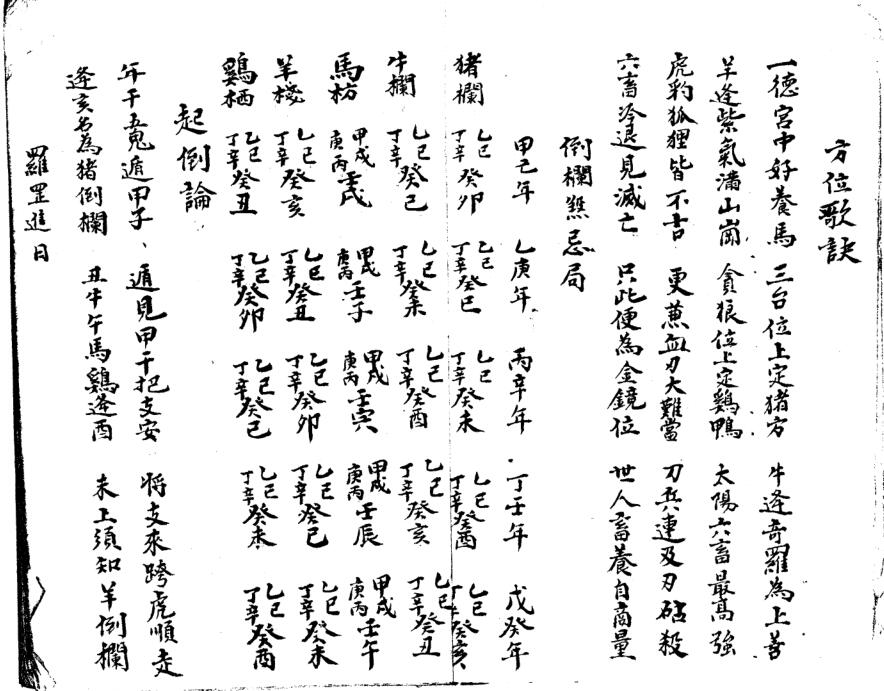 方位歌訣
一德宮中好養馬　三台位上定猪方　牛逢奇羅為上善
羊逢紫氣滿山崗　貪狼位上定鷄鴨　太陽六畜最高強
虎豹狐狸皆不吉　更蒹血刃大難當　刀兵連及刃砧殺
六畜冷退見滅亡　只此便為金鏡位　世人畜養自商量
倒欄煞忌局
甲己年　乙庚年　丙辛年　丁壬年　戊癸年
猪欄　乙己丁辛癸卯　乙己丁辛癸巳　乙己丁辛癸未　乙己丁辛癸酉　乙己丁辛癸亥
牛欄　乙己丁辛癸巳　乙己丁辛癸未　乙己丁辛癸酉　乙己丁辛癸亥　乙己丁辛癸丑
馬枋　甲戊庚丙壬戌　甲戊庚丙壬子　甲戊庚丙壬寅　甲戊庚丙壬辰　甲戊庚丙壬午
羊棧　乙己丁辛癸亥　乙己丁辛癸丑　乙己丁辛癸卯　乙己丁辛癸巳　乙己丁辛癸未
鷄栖　乙己丁辛癸丑　乙己丁辛癸卯　乙己丁辛癸巳　乙己丁辛癸未　乙己丁辛癸酉
起倒論
年干五鬼遁甲子、遁見甲干把支安　將支來跨虎順走
逢亥名為猪倒欄　丑牛午馬鷄逢酉　未上須知羊倒欄
羅罡進日